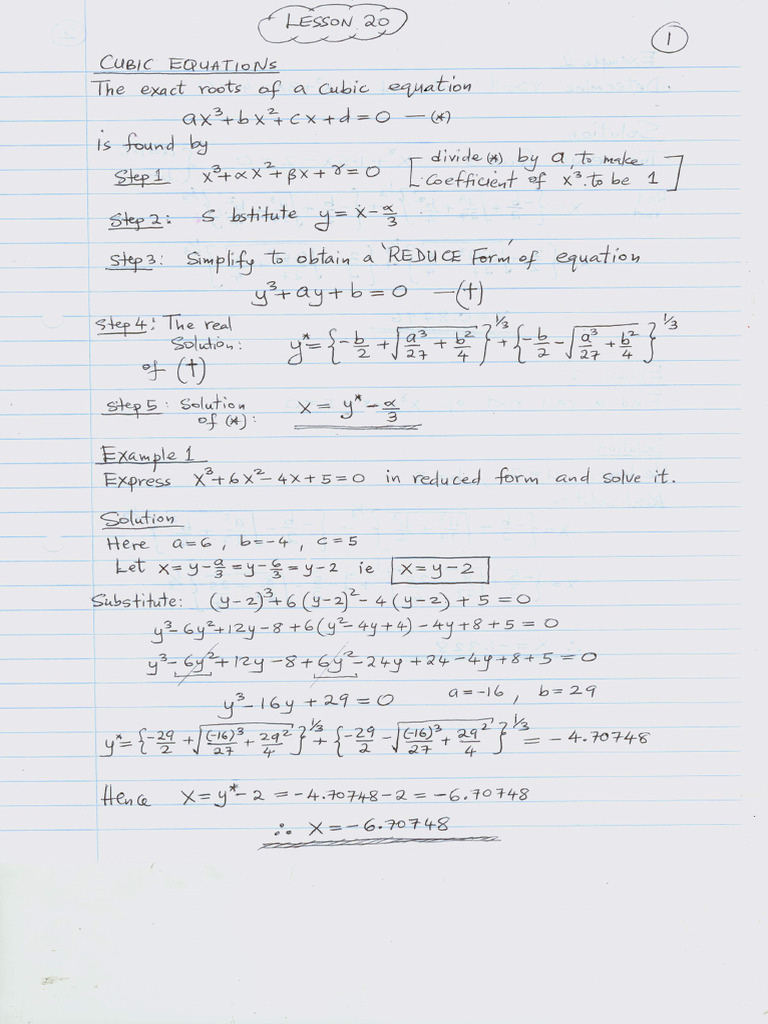 LESSON 20
1
CUBIC EQUATIONS
The exact roots of a cubic equation
ax³+bx²+cx+d=0 —(*)
is found by
Step 1 x³+αx²+βx+γ=0 [divide (*) by a, to make
coefficient of x³ to be 1]
Step 2: S bstitute y=x-α/3
Step 3: Simplify to obtain a 'REDUCE Form' of equation
y³+ay+b=0 —(†)
Step 4: The real
Solution: y*={-b/2+√(a³/27+b²/4)}^1/3+{-b/2-√(a³/27+b²/4)}^1/3
of (†)
Step 5: Solution x=y*-α/3
of (*):
Example 1
Express x³+6x²-4x+5=0 in reduced form and solve it.
Solution
Here a=6, b=-4, c=5
Let x=y-a/3=y-6/3=y-2 ie x=y-2
Substitute: (y-2)³+6(y-2)²-4(y-2)+5=0
y³-6y²+12y-8+6(y²-4y+4)-4y+8+5=0
y³-6y²+12y-8+6y²-24y+24-4y+8+5=0
y³-16y+29=0 a=-16, b=29
y*={-29/2+√((-16)³/27+29²/4)}^1/3+{-29/2-√((-16)³/27+29²/4)}^1/3=-4.70748
Hence x=y*-2=-4.70748-2=-6.70748
∴ x=-6.70748